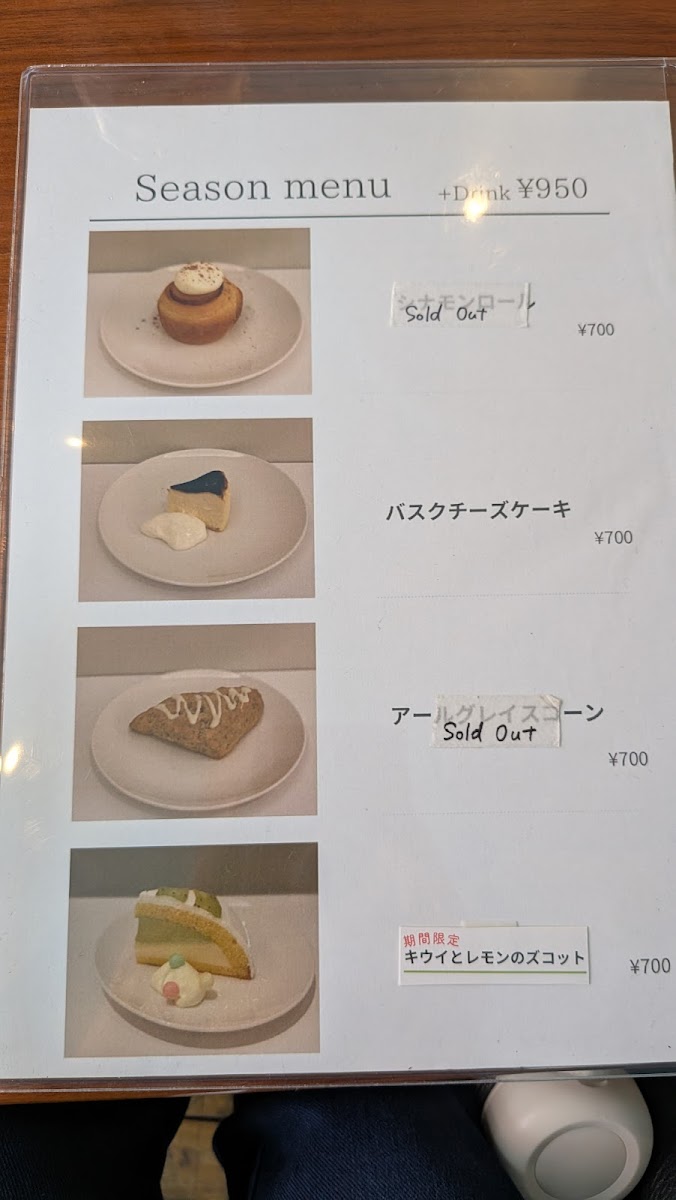 Season menu +Drink ¥950
シナモンロール
Sold Out
¥700
バスクチーズケーキ
¥700
アールグレイスコーン
Sold Out
¥700
期間限定
キウイとレモンのズコット
¥700